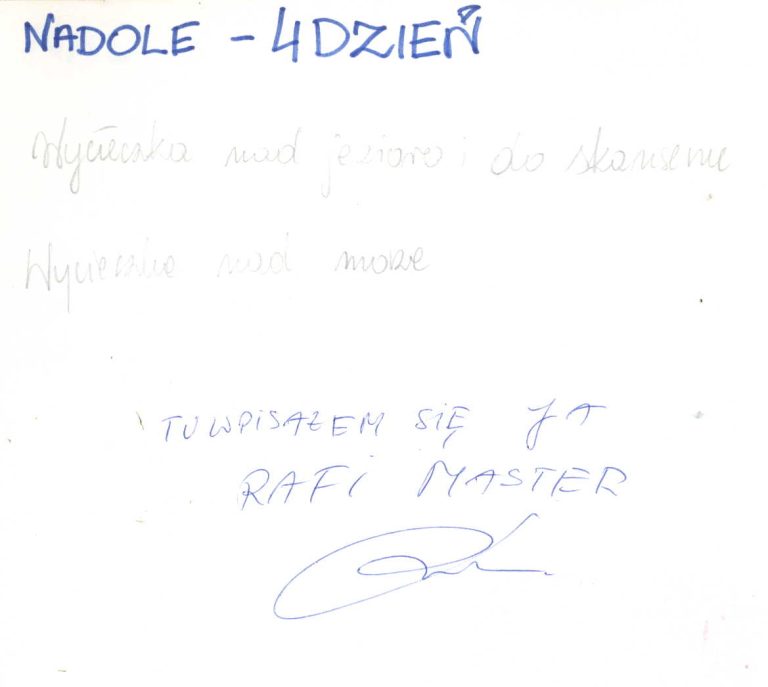 NADOLE - 4 DZIEŃ
Wycieczka nad jezioro i do skansenu
Wycieczka nad morze
TU WPISAŁEM SIĘ JA
RAFI MASTER